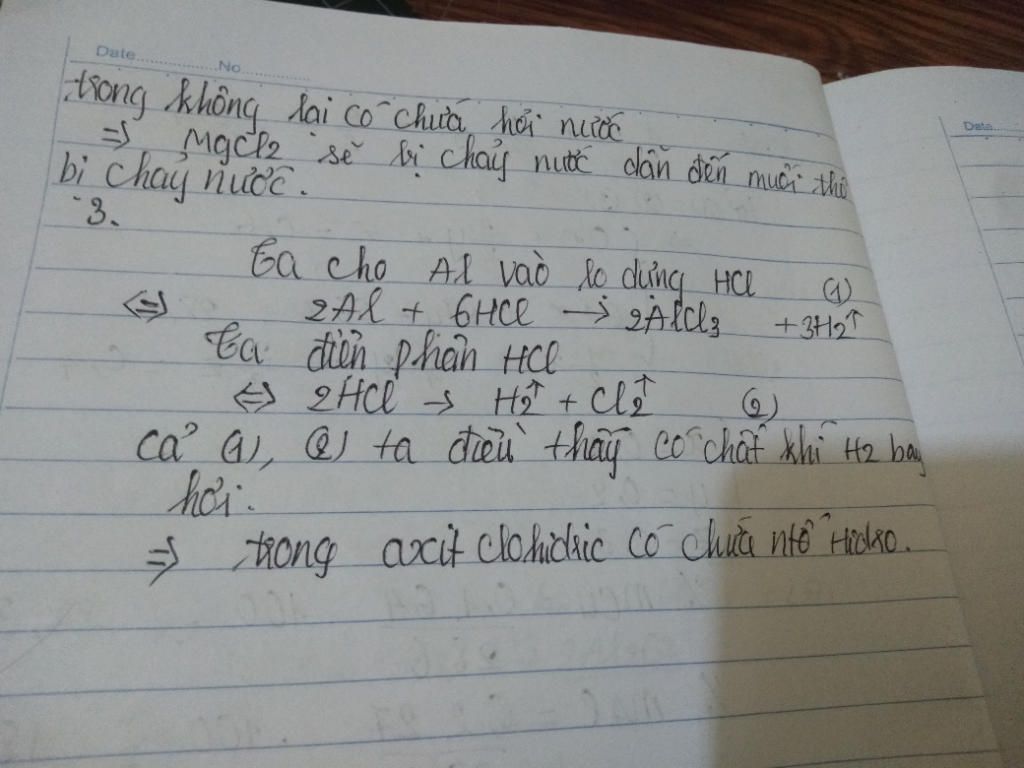 Date............No............
trong không lại có chứa hơi nước
=> MgCl2 sẽ bị chảy nước dẫn đến muối thô
bị chảy nước.
3.
Ta cho Al vào lo dựng HCl (1)
<=> 2Al + 6HCl → 2AlCl3 + 3H2↑
Ta điện phân HCl
<=> 2HCl → H2↑ + Cl2↑ (2)
Cả (1), (2) ta điều thấy có chất khí H2 bay
hơi.
=> trong axit clohidric có chứa ntố Hidro.
Date